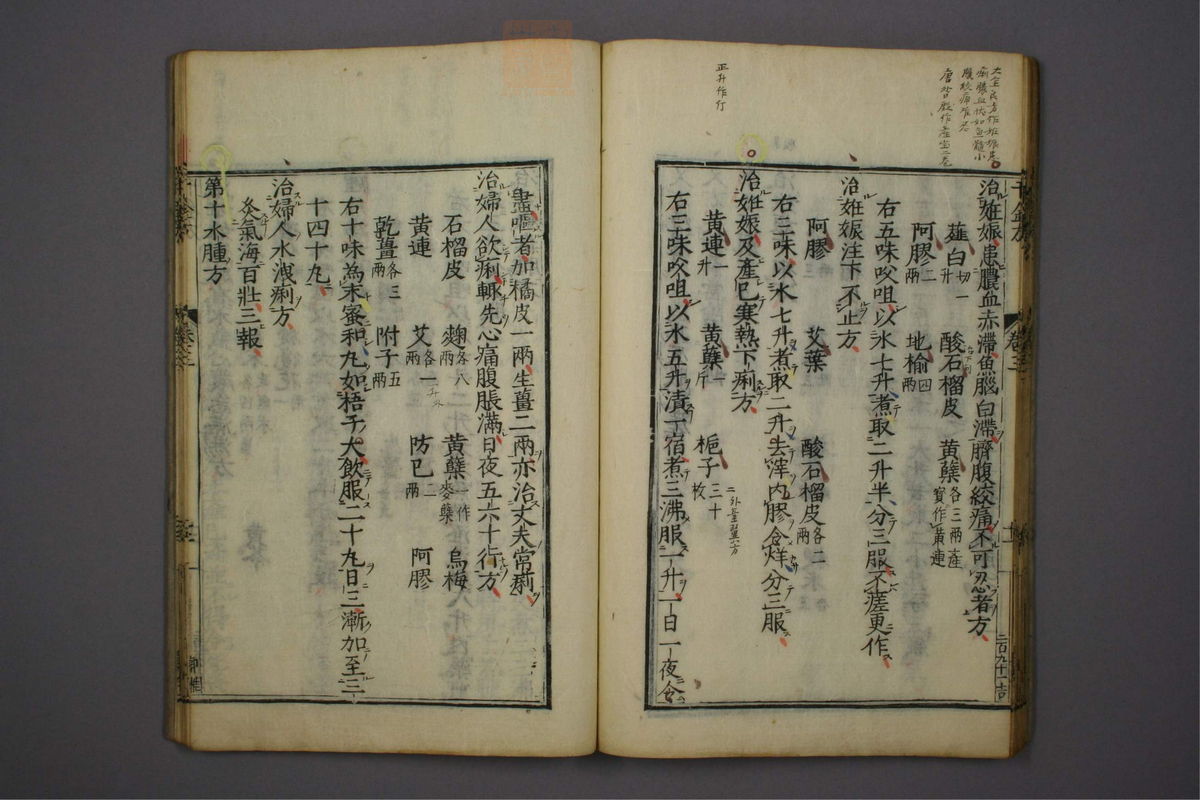 治姙娠患膿血赤滯魚腦白滯臍腹絞痛不可忍者方
薤白切一升 酸石榴皮 黃蘗各三兩產寶作黃連
阿膠二兩 地榆四兩
右五味㕮咀以水七升煮取二升半分三服不瘥更作
治姙娠注下不止方
阿膠 艾葉 酸石榴皮各二兩
右三味以水七升煮取二升去滓內膠令烊分三服
治姙娠及產已寒熱下痢方
黃連一升 黃蘗一斤 梔子三十枚
右三味㕮咀以水五升漬一宿煮三沸服一升一日一夜令
盡嘔者加橘皮一兩生薑二兩亦治丈夫常痢
治婦人欲痢輒先心痛腹脹滿日夜五六十行方
石榴皮 麴各八兩 黃蘗一作麥蘗 烏梅
黃連 艾各一兩 防已二兩 阿膠
乾薑各三兩 附子五兩
右十味為末蜜和丸如梧子大飲服二十丸日三漸加至三
十四十丸
治婦人水洩痢方
灸氣海百壯三報
第十水腫方
正升作行
千金方
卷三